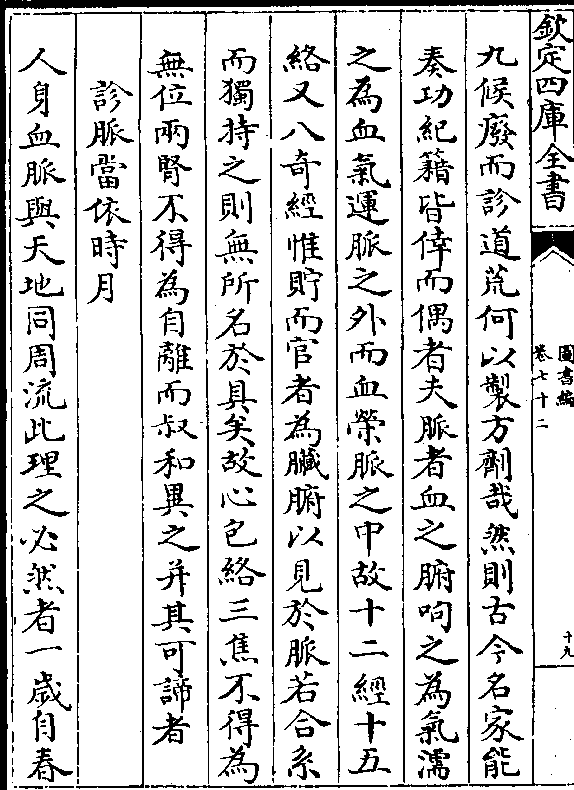 欽定四庫全書
圖書編
卷七十二
十九
九候廢而診道荒何以製方劑哉然則古今名家能
奏功紀籍皆倖而偶者夫脈者血之腑呴之為氣濡
之為血氣運脈之外而血榮脈之中故十二經十五
絡又八奇經惟貯而官者為臟腑以見於脈若合系
而獨持之則無所名於具矣故心包絡三焦不得為
無位兩腎不得為自離而叔和異之并其可諦者
診脈當依時月
人身血脈與天地同周流此理之必然者一歲自春